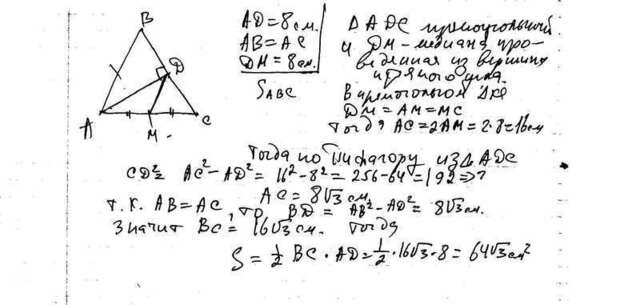 B
D
A
M
C
AD = 8 см.
AB = AC
DM = 8 см.
S_ABC
Δ ADC прямоугольный
и DM - медиана про-
веденная из вершины
прямого угла.
В прямоугольном Δке
DM = AM = MC
Тогда AC = 2AM = 2·8 = 16 см
Тогда по Пифагору из Δ ADC
CD² = AC² - AD² = 16² - 8² = 256 - 64 = 192 =>
AC = 8√3 см.
т.к. AB = AC, то BD = AB² - AD² = 8√3 см.
Значит BC = 16√3 см. Тогда
S = 1/2 BC · AD = 1/2 · 16√3 · 8 = 64√3 см²